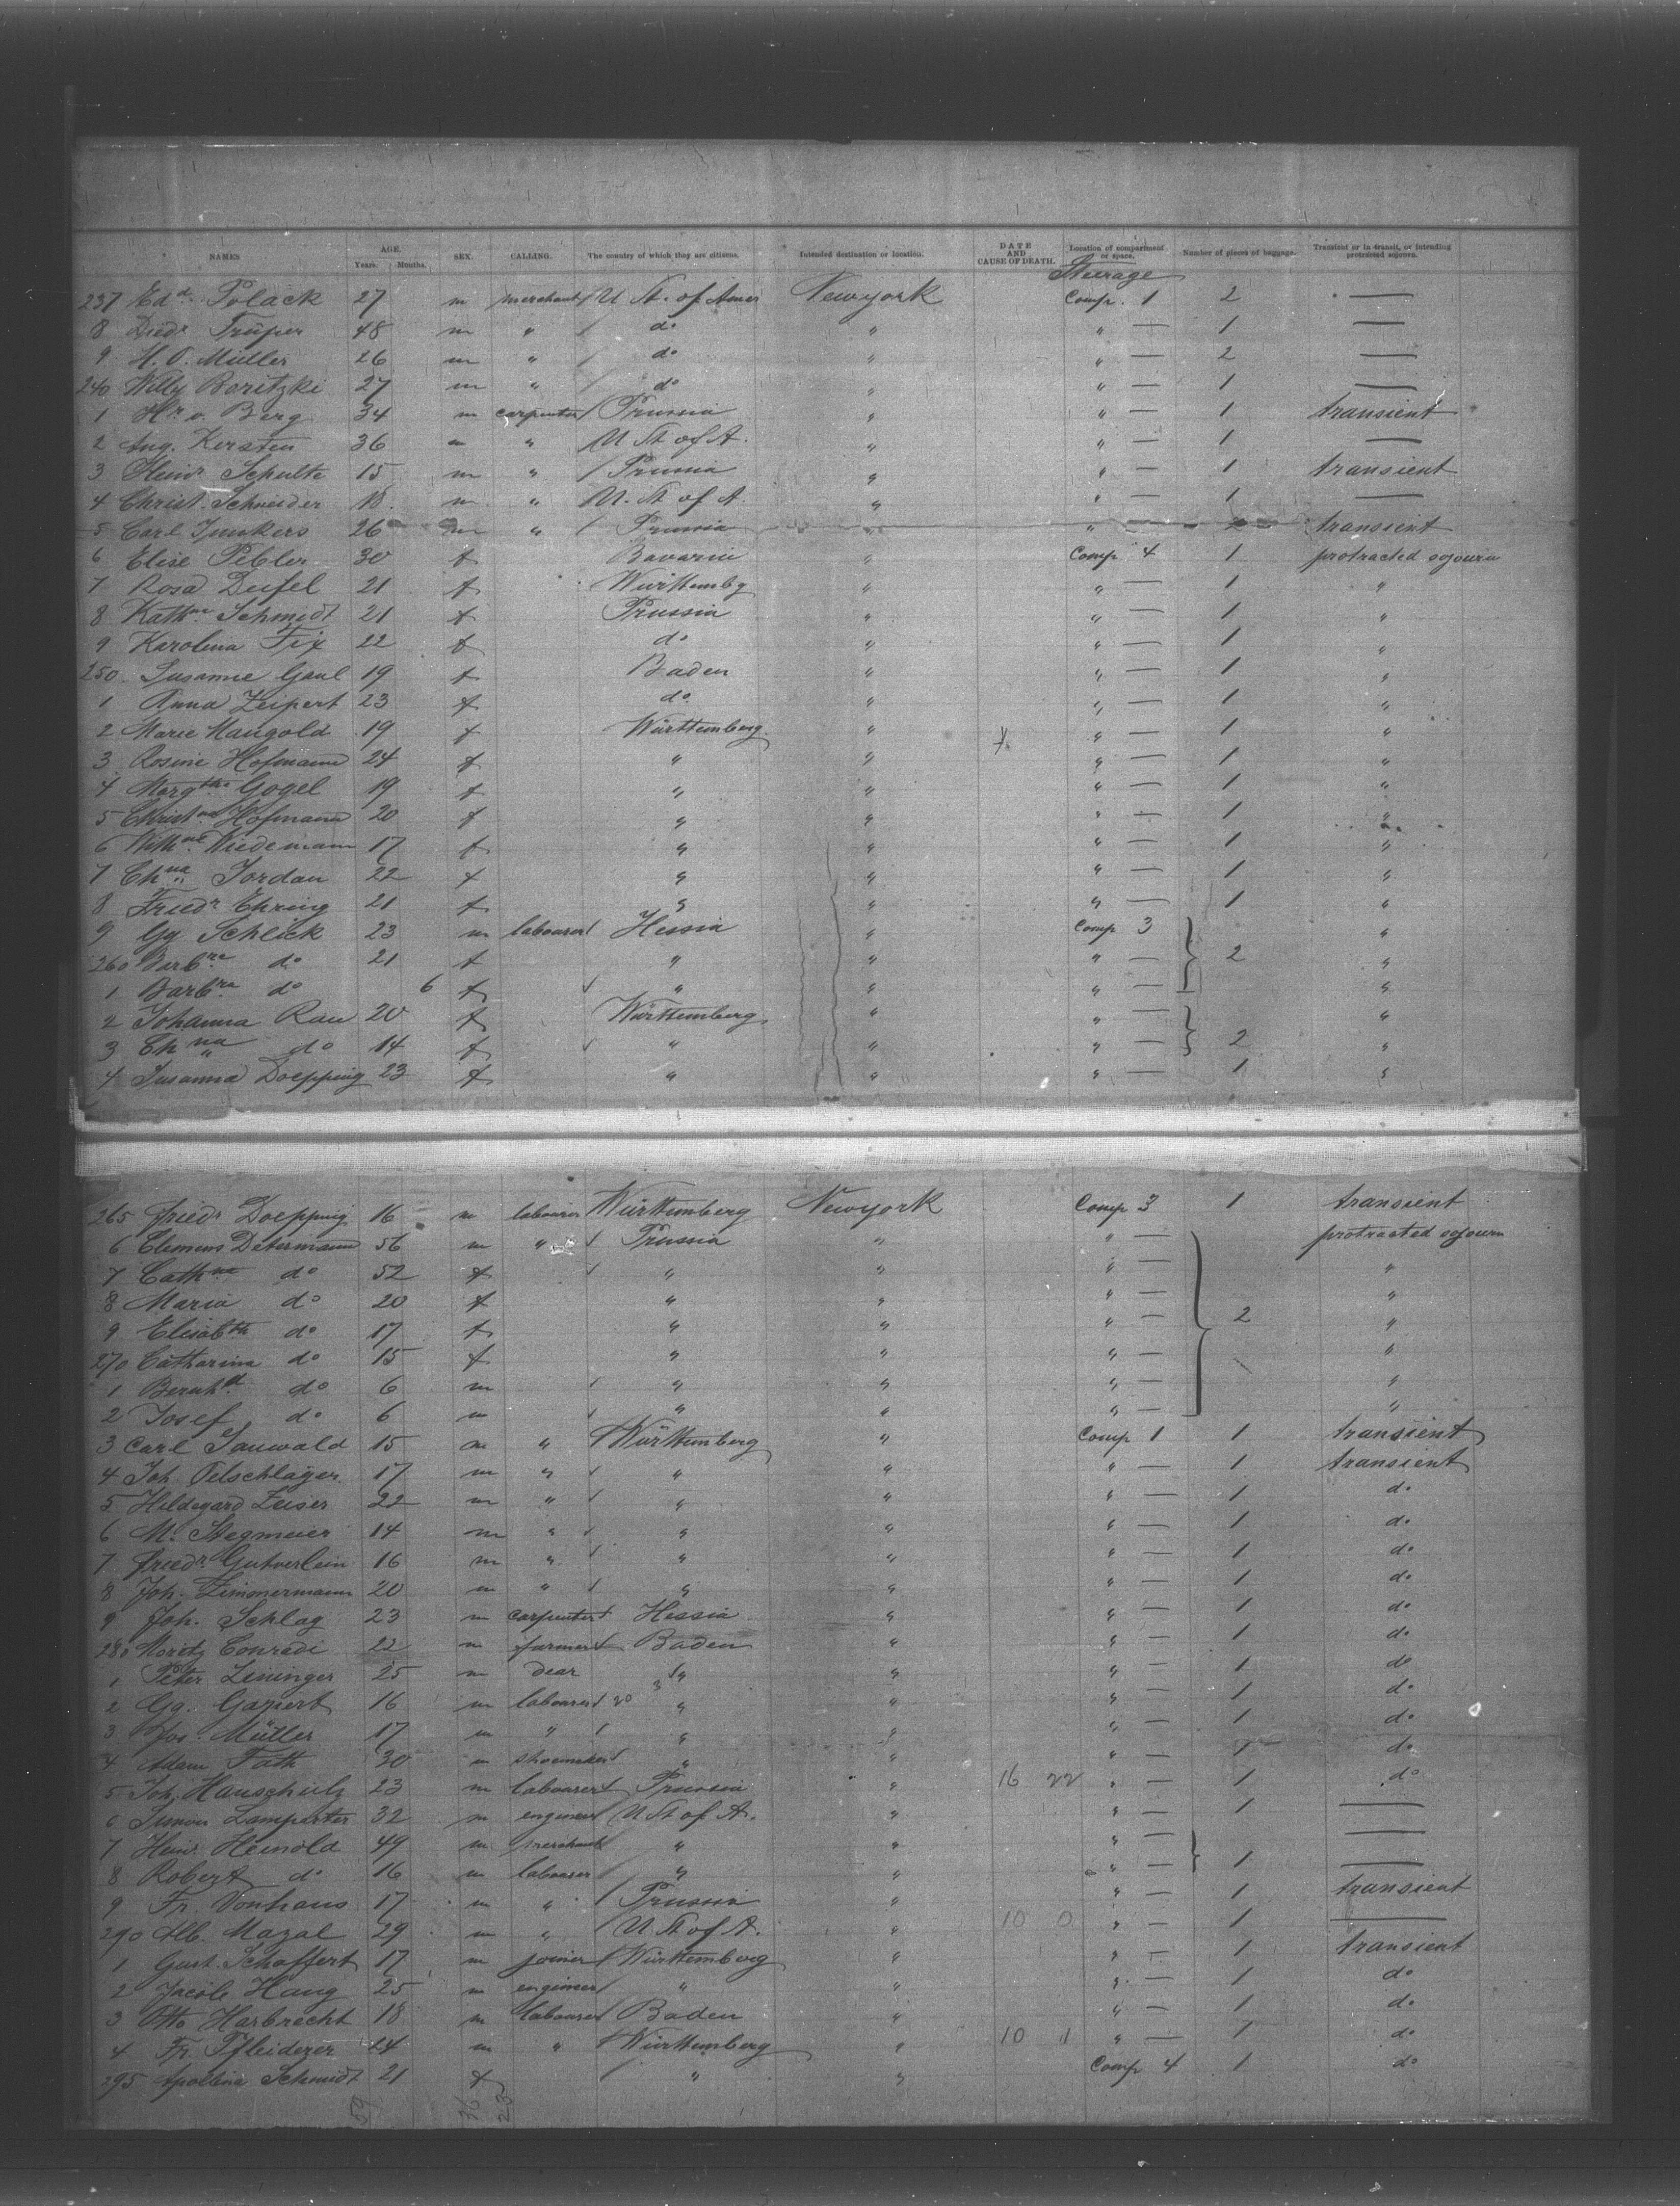 NAMES AGE. Years. Months. SEX. CALLING. The country of which they are citizens. Intended destination or location. DATE AND CAUSE OF DEATH. Location of compartment or space. Number of pieces of baggage. Transient or in transit, or intending protracted sojourn.
Steerage
237 Edd. Polack 27 m merchant U St. of Amer Newyork Comp. 1 2 —
8 Diedr Trüper 48 m " / do " " — 1 —
9 H. O. Müller 26 m " / do " " — 2 —
240 Willy Boritzki 27 m " / do " " — 1 —
1 Hr v. Berg 34 m carpenter Prussia " " — 1 transient
2 Aug. Kersten 36 m " U St of A. " " — 1 —
3 Heinr Schulte 15 m " / Prussia " " — 1 transient
4 Christ. Schneider 18 m " U. St of A. " " — 1 —
5 Carl Junkers 26 m " / Prussia " " — transient
6 Elise Pebler 30 f Bavaria " Comp 4 1 protracted sojourn
7 Rosa Deifel 21 f Württembg " " — 1 "
8 Kathne Schmidt 21 f Prussia " " — 1 "
9 Karolina Fix 22 f do " " — 1 "
250 Susanne Gaul 19 f Baden " " — 1 "
1 Anna Zeipert 23 f do " " — 1 "
2 Marie Mangold 19 f Württemberg " " — 1 "
3 Rosine Hofmann 24 f " " " — 1 "
4 Margthe Gogel 19 f " " " — 1 "
5 Christne Hofmann 20 f " " " — 1 "
6 Wilhne Wiedemann 17 f " " " — 1 "
7 Chna Jordan 22 f " " " — 1 "
8 Friedr Ehring 21 f " " " — 1 "
9 Gg Schlick 23 m labourer Hessia " Comp 3 "
260 Barbra do 21 f " " " — 2 "
1 Barbra do 6 f " " " — "
2 Johanna Rau 20 f Württemberg " " — "
3 Chna do 14 f " " " — 2 "
4 Susanna Doepping 23 f " " " — 1 "
265 Friedr Doepping 16 m labourer Württemberg Newyork Comp 3 1 transient
6 Clemens Determann 56 m " Prussia " " — protracted sojourn
7 Cathne do 52 f " " " — "
8 Maria do 20 f " " " — "
9 Elisabth do 17 f " " " — 2 "
270 Catharina do 15 f " " " — "
1 Bernhd do 6 m " " " — "
2 Josef do 6 m " " " — "
3 Carl Sauwald 15 m " Württemberg " Comp 1 1 transient
4 Joh. Oelschläger 17 m " " " " — 1 transient
5 Hildegard Zeiser 22 m " " " " — 1 do
6 M. Stegmeier 14 m " " " " — 1 do
7 Friedr Gutverlein 16 m " " " " — 1 do
8 Joh. Zimmermann 20 m " " " " — 1 do
9 Joh. Schlag 23 m carpenter Hessia " " — 1 do
280 Moritz Conradi 22 m farmer Baden " " — 1 do
1 Peter Leninger 25 m " " " — 1 do
2 Gg. Gapiert 16 m labourer " " " — 1 do
3 Jos. Müller 17 m " / " " " — 1 do
4 Adam Foth 30 m shoemaker " " " — 1 do
5 Joh. Hauschulz 23 m labourer Prussia " 16 22 " — 1 do
6 Simon Lamparter 32 m engineer U St of A. " " — 1 —
7 Heinr Heinold 49 m merchant " " " — —
8 Robert do 16 m labourer " " " — 1 —
9 Fr. Vonhaus 17 m " / Prussia " " — 1 transient
290 Alb. Mazal 29 m " / U. St of A. " 10 0 " — 1 —
1 Gust. Schaffert 17 m joiner Württemberg " " — 1 transient
2 Jacob Haug 25 m engineer " " " — 1 do
3 Otto Harbrecht 18 m labourer Baden " " — 1 do
4 Fr. Pfleiderer 24 m " Württemberg " 10 1 " — 1 do
295 Apollina Schmidt 21 f " " Comp 4 1 do
59 36 23